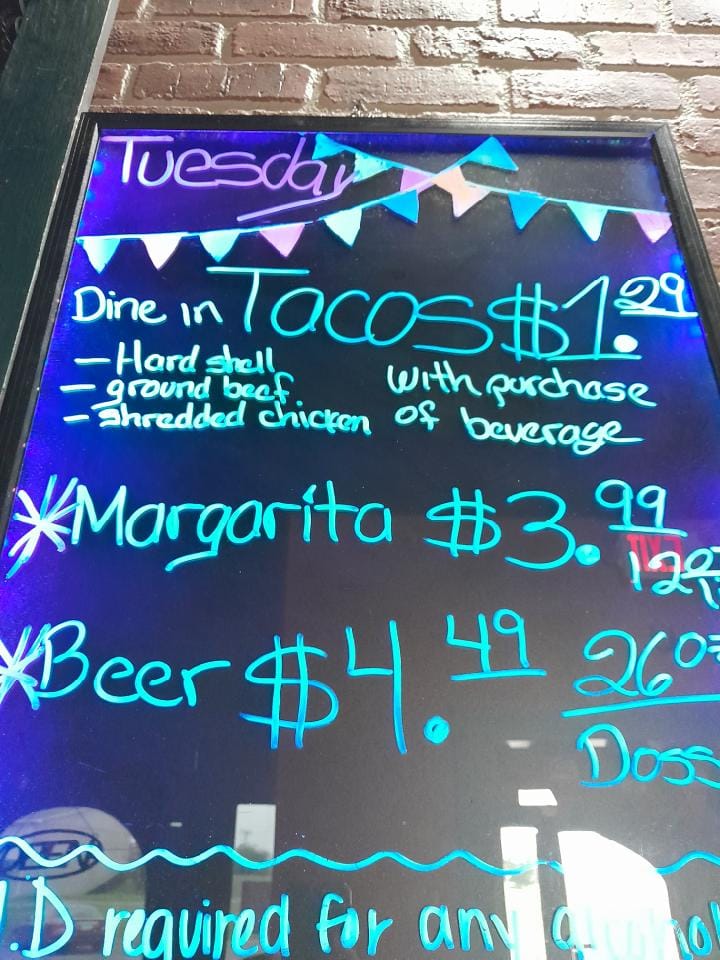 Tuesday
Dine in Tacos $1.29
- Hard shell
- ground beef
- shredded chicken
with purchase
of beverage
*Margarita $3.99
12oz
*Beer $4.49 26oz
Doss
I.D required for any alcohol
EXIT